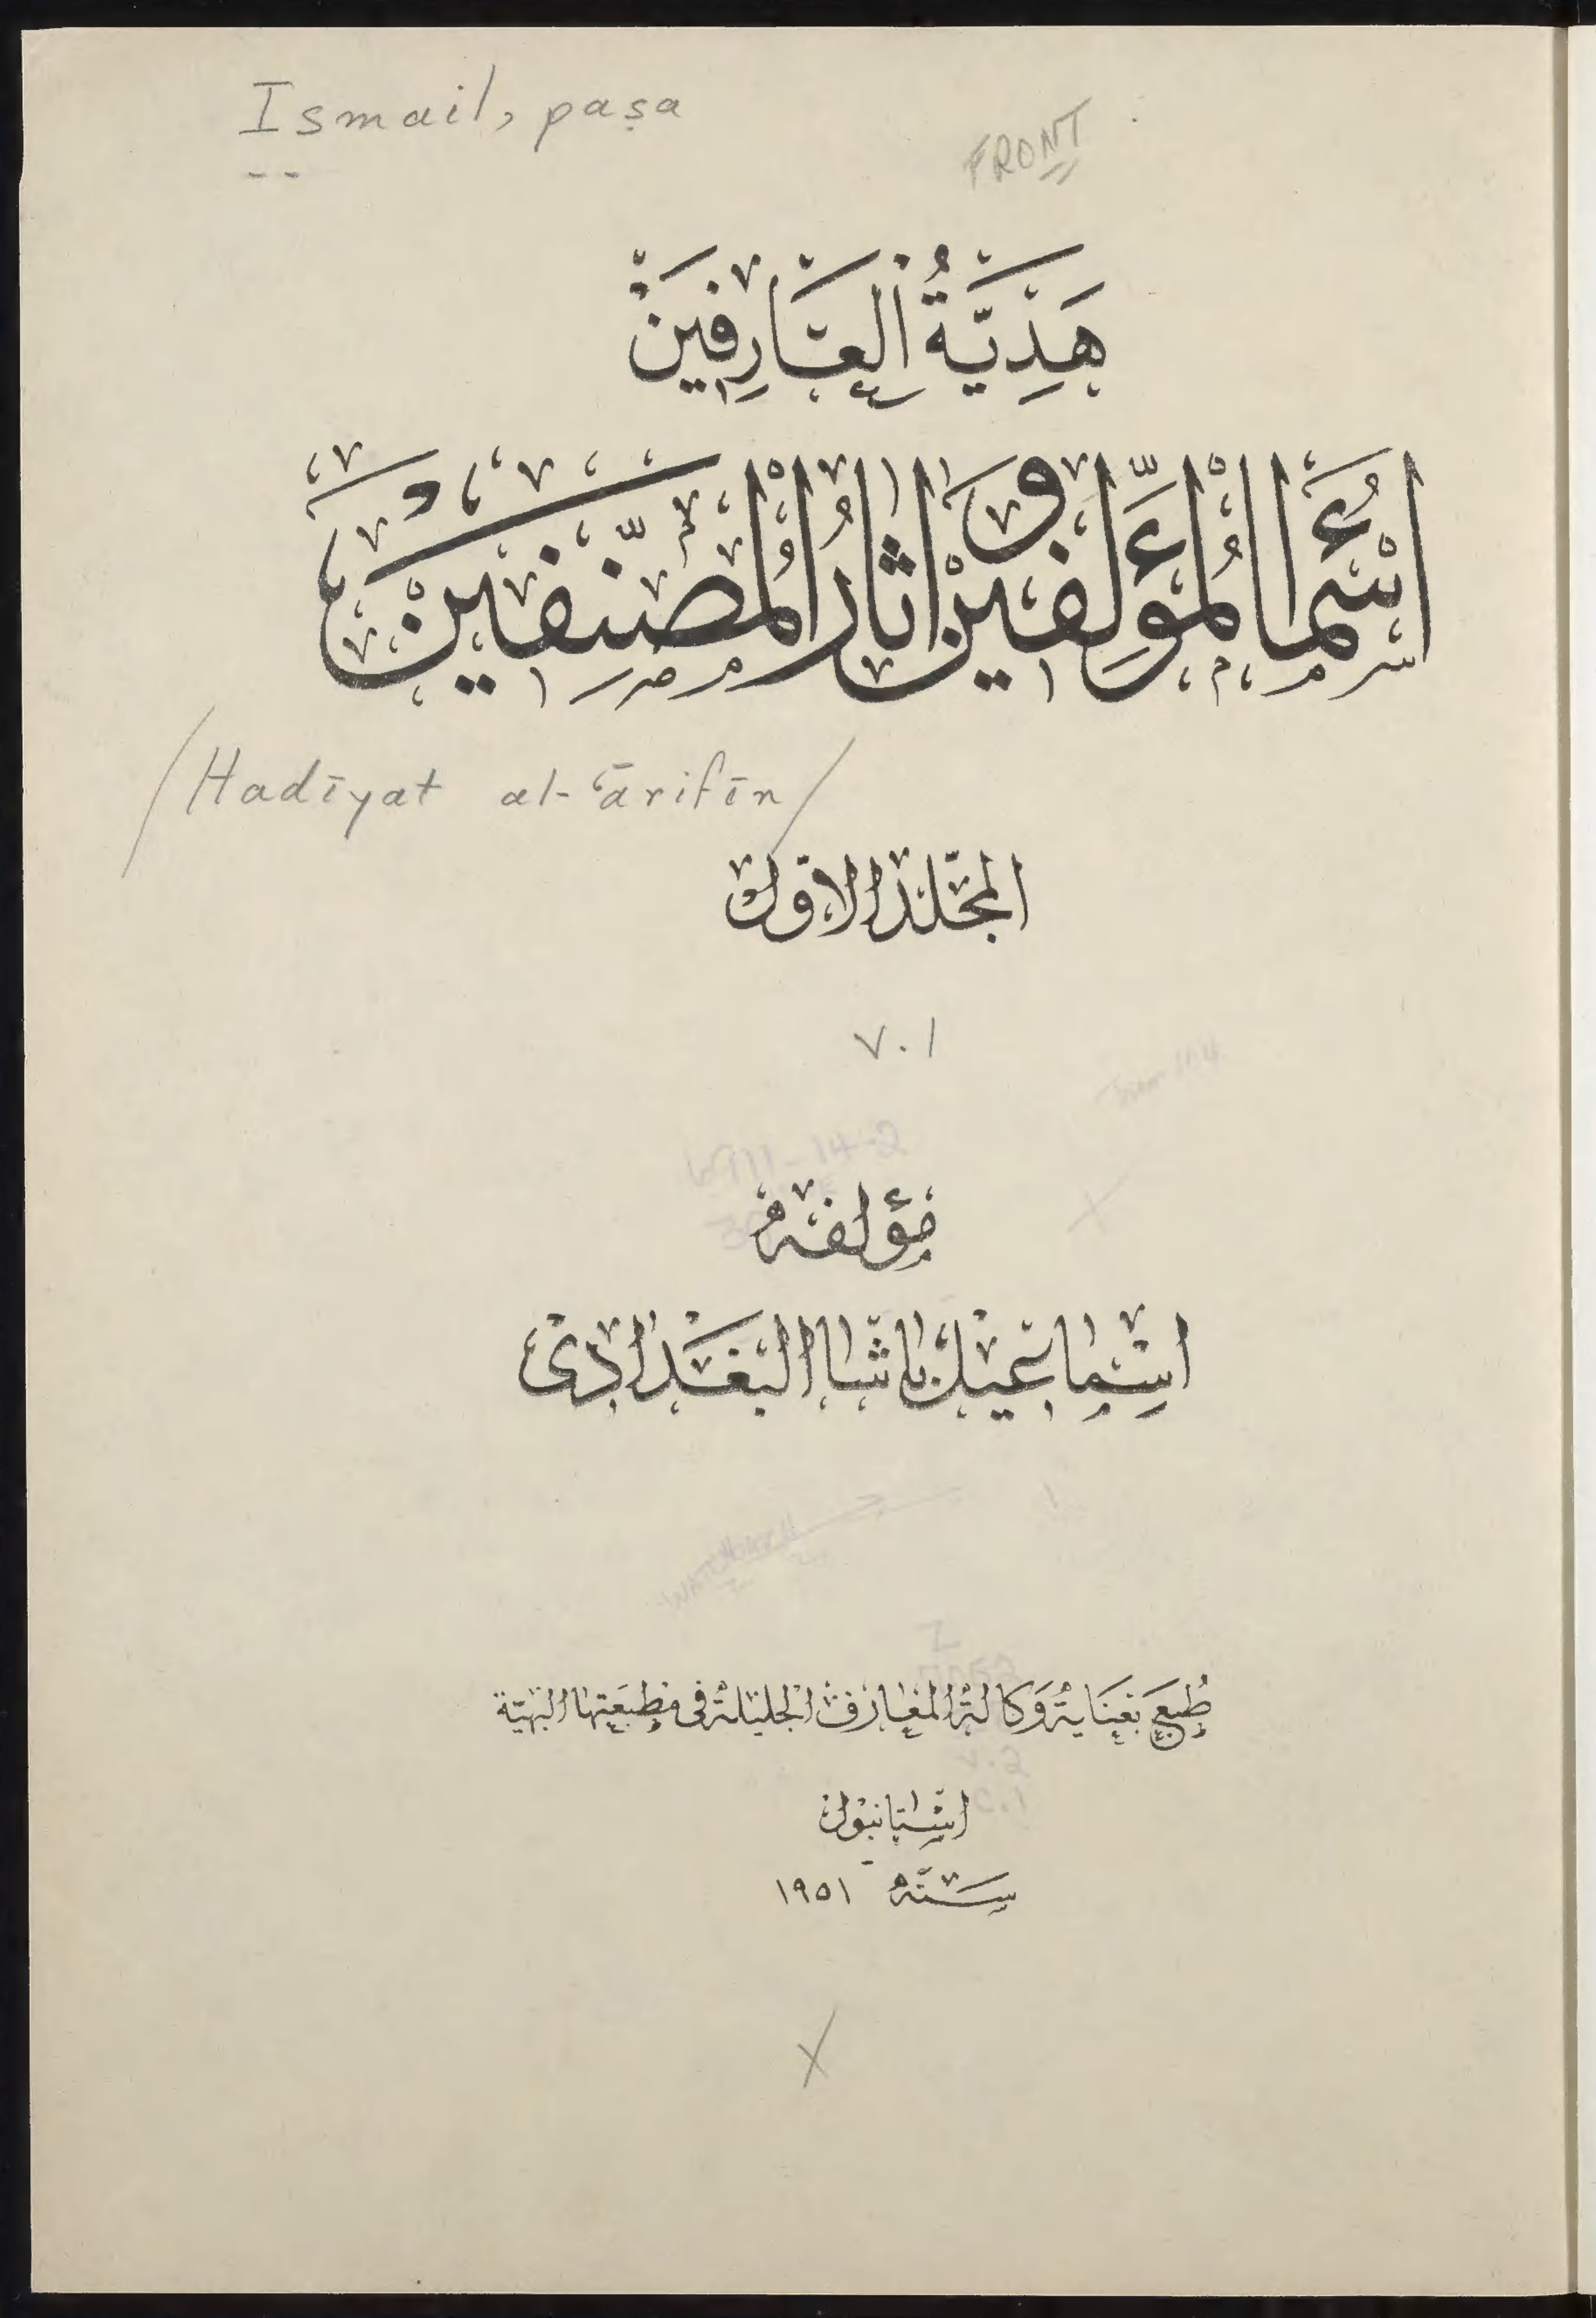 Ismail, paşa
FRONT
هَدِيَّةُ الْعَارِفِينَ
أَسْمَاءُ الْمُؤَلِّفِينَ وَآثَارُ الْمُصَنِّفِينَ
/Hadīyat al-ʿārifīn/
المجلد الاول
v.1
مؤلفه
اسماعيل باشا البغدادى
طُبِعَ بعناية وكالة المعارف الجليلة فى مطبعتها البهية
استانبول
سنه ١٩٥١
X